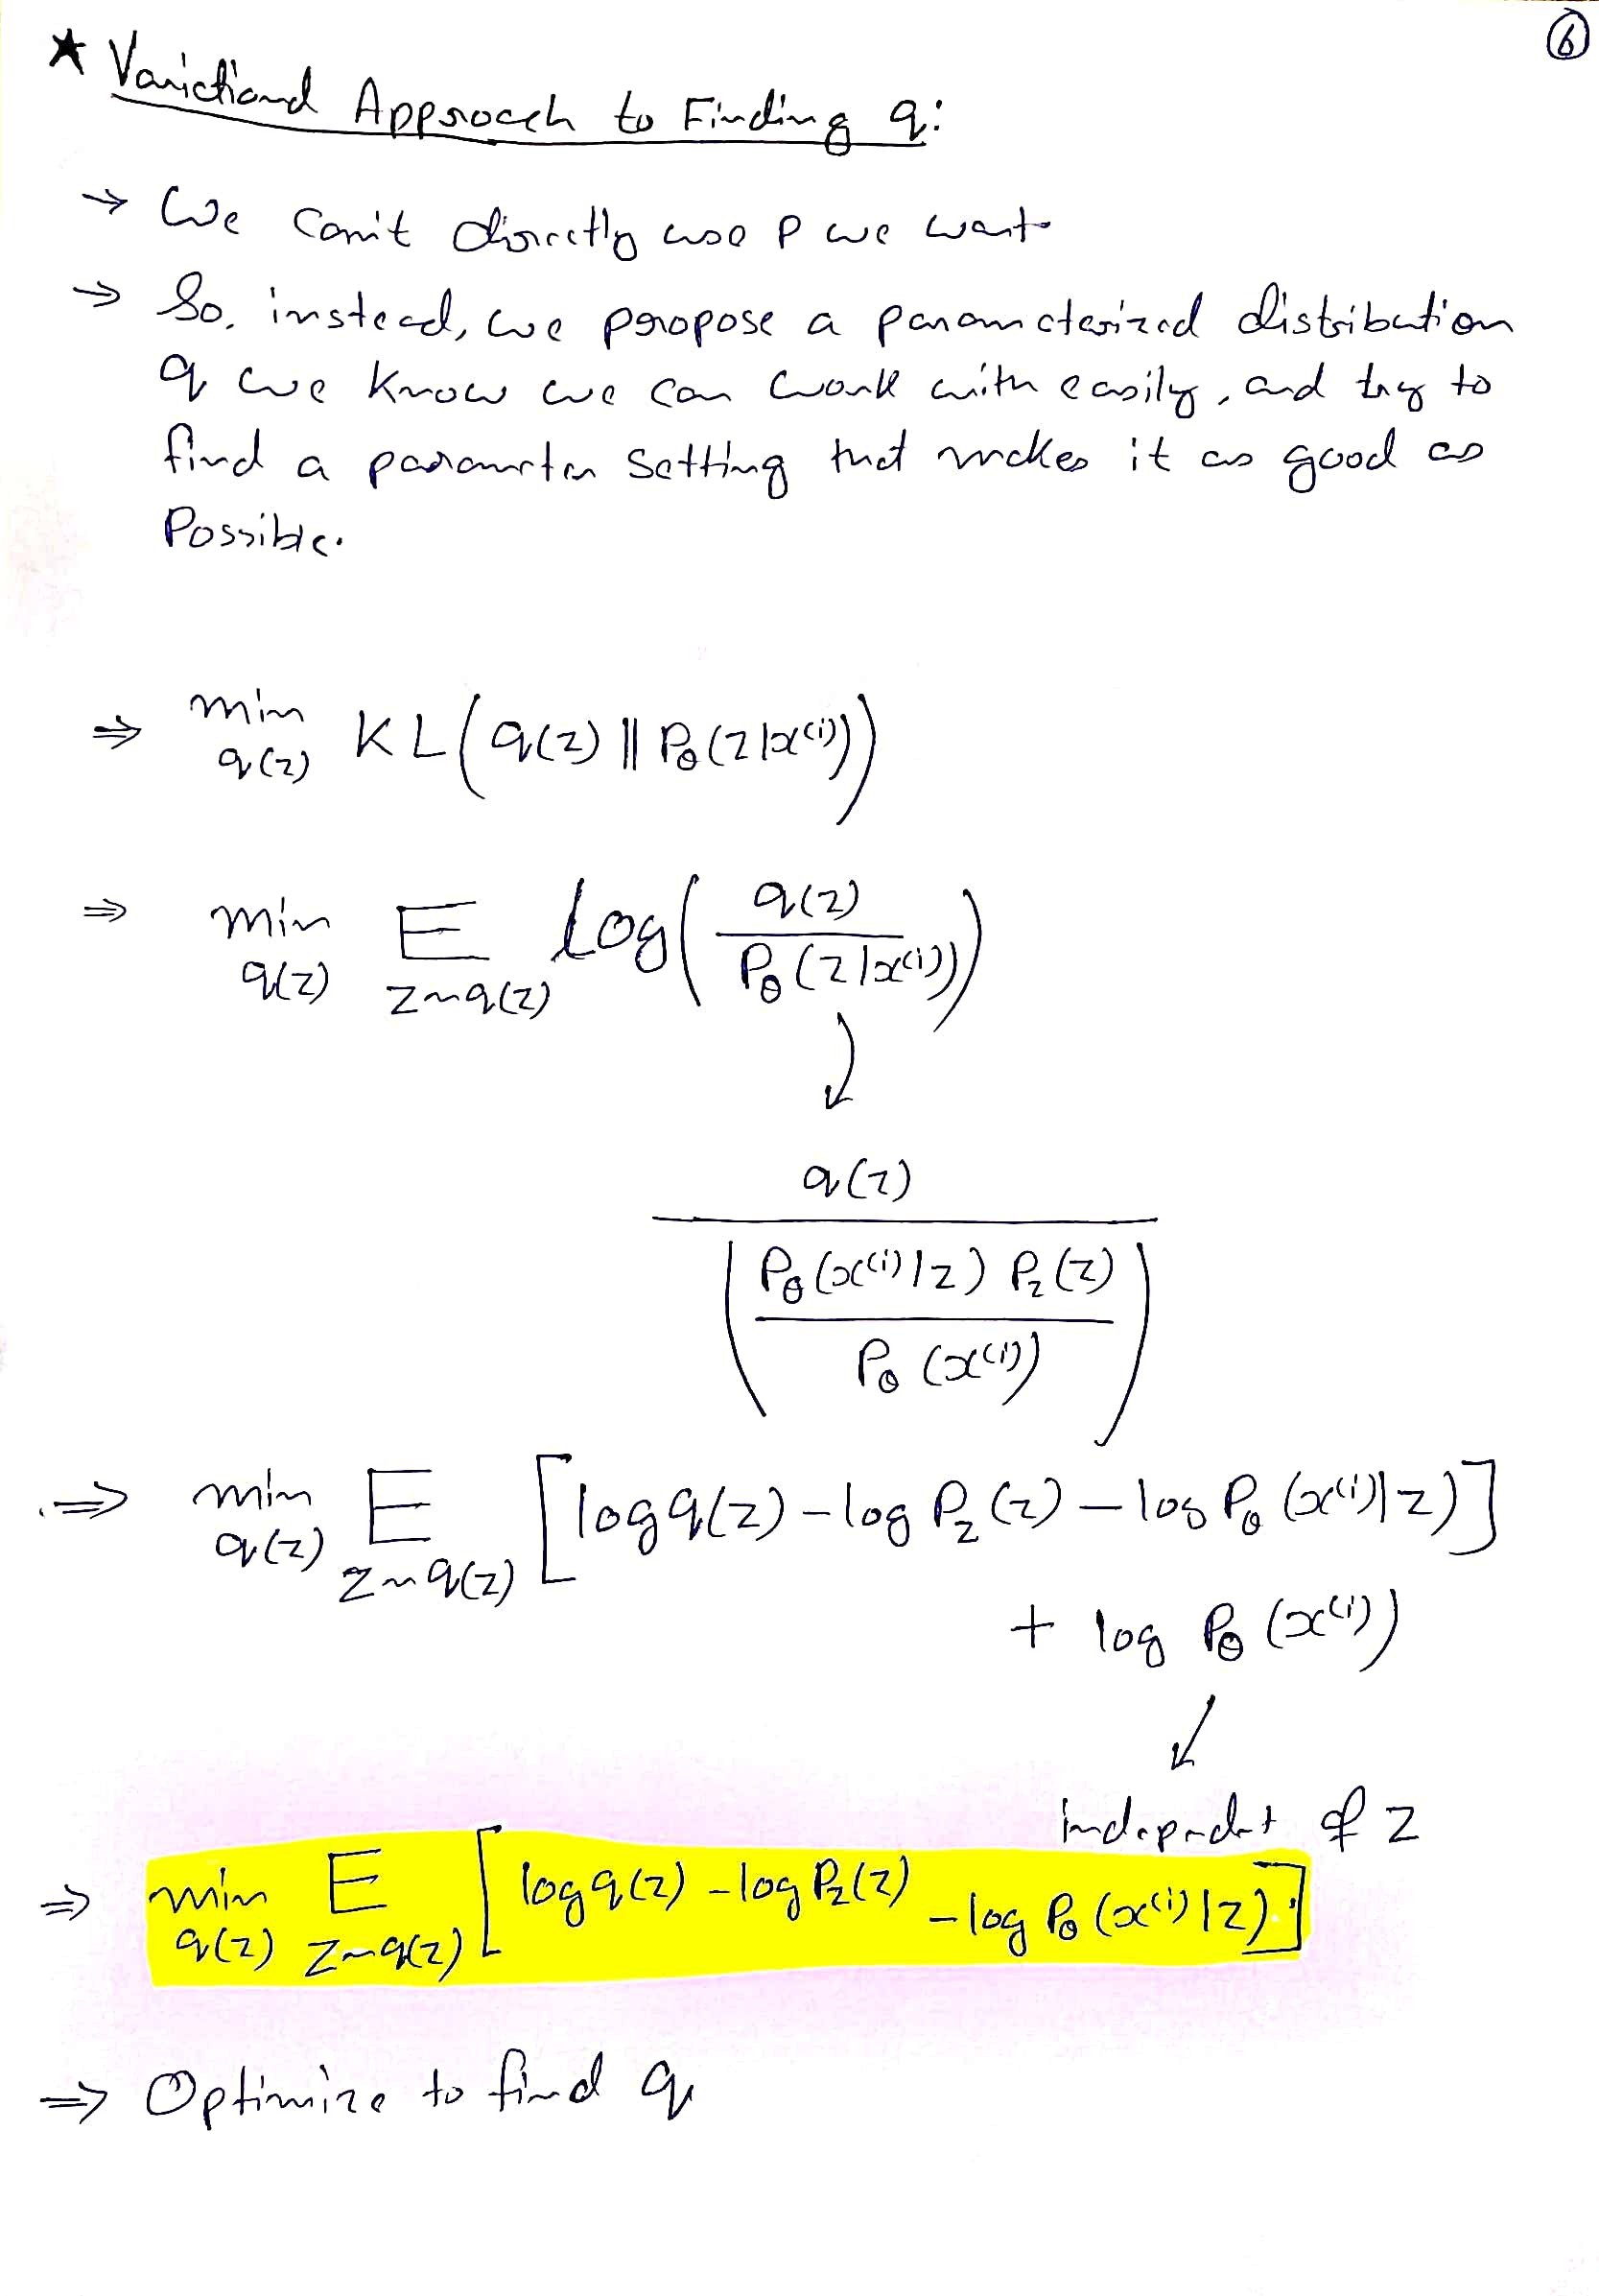 ⑥
★ Variational Approach to Finding q:
→ We can't directly use p we want
→ So, instead, we propose a parameterized distribution
q we know we can work with easily, and try to
find a parameter setting that makes it as good as
Possible.
⇒ min KL(q(z) || Pθ(z|x⁽ⁱ⁾))
q(z)
⇒ min E log( q(z) / Pθ(z|x⁽ⁱ⁾) )
q(z) z~q(z)
q(z)
( Pθ(x⁽ⁱ⁾|z) Pz(z)
Pθ(x⁽ⁱ⁾) )
⇒ min E [log q(z) – log Pz(z) – log Pθ(x⁽ⁱ⁾|z)]
q(z) z~q(z)
+ log Pθ(x⁽ⁱ⁾)
independent of z
⇒ min E [log q(z) – log Pz(z) – log Pθ(x⁽ⁱ⁾|z)]
q(z) z~q(z)
⇒ Optimize to find q